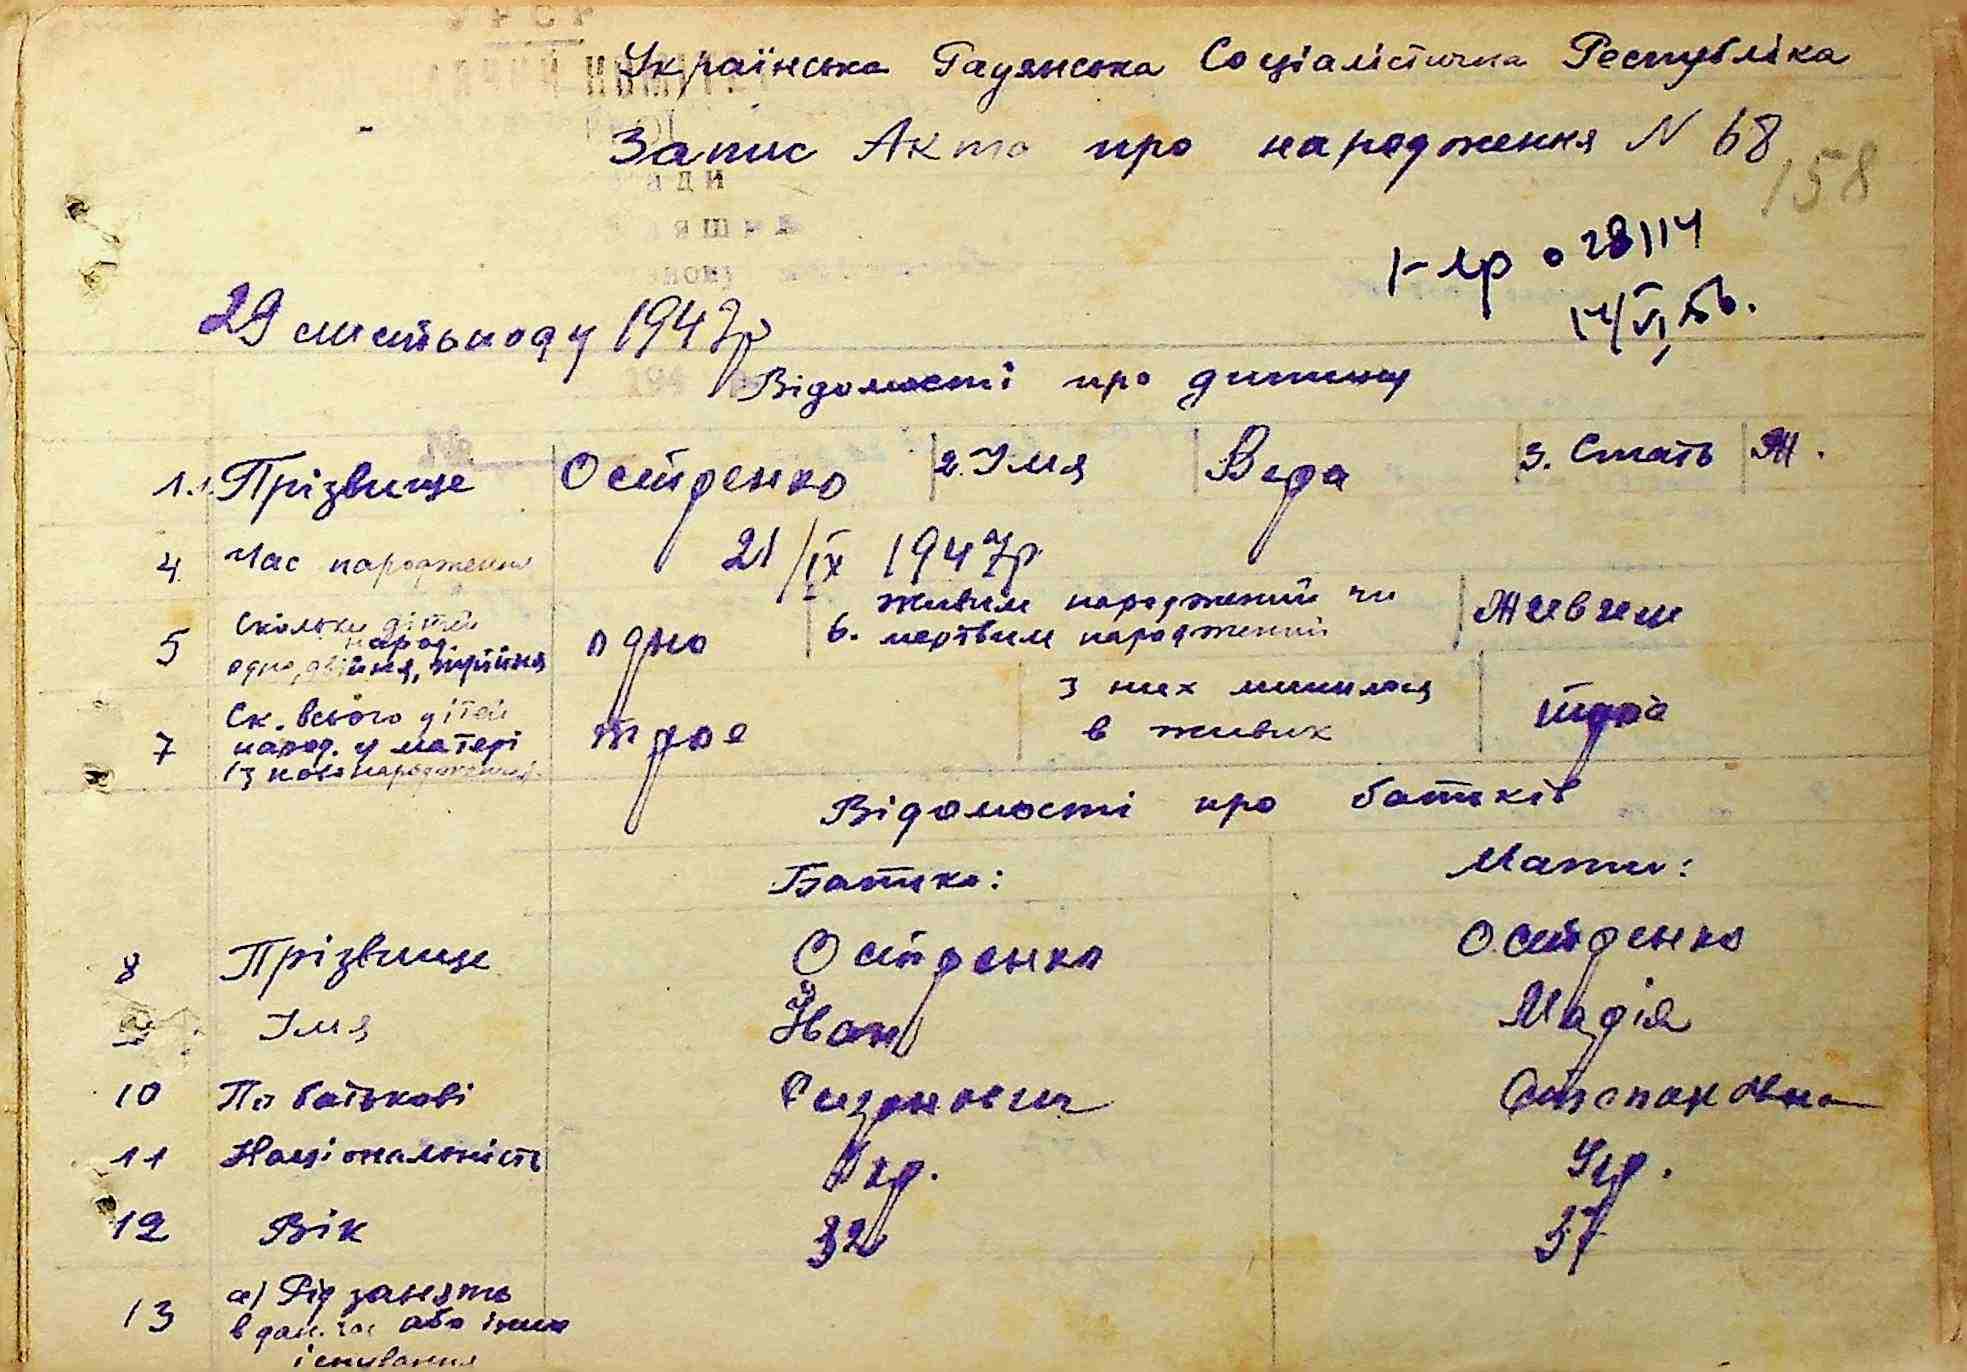 УРСР
Українська Радянська Соціалістична Республіка
Запис Акта про народження N 68
158
ади
028114
14/VI 56.
29 листопаду 1947р
194
Відомості про дитину
1.1. Прізвище Остренко 2. Імя Вера 3. Стать Ж.
4 Час народження 21/IX 1947р
5 Скольки дітей народ. одно, двійня, трійня одно 6. живим народжений чи мертвим народжений Живим
7 Ск. всього дітей народ. у матері із новонародженим трое з них лишилося в живих троє
Відомості про батьків
Батько: Мати:
8 Прізвище Остренко Остренко
9 Імя Іван Марія
10 По батькові Степановна
11 Національність Укр. Укр.
12 Вік 32 37
13 а) Рід занять в дан. час або інше існування